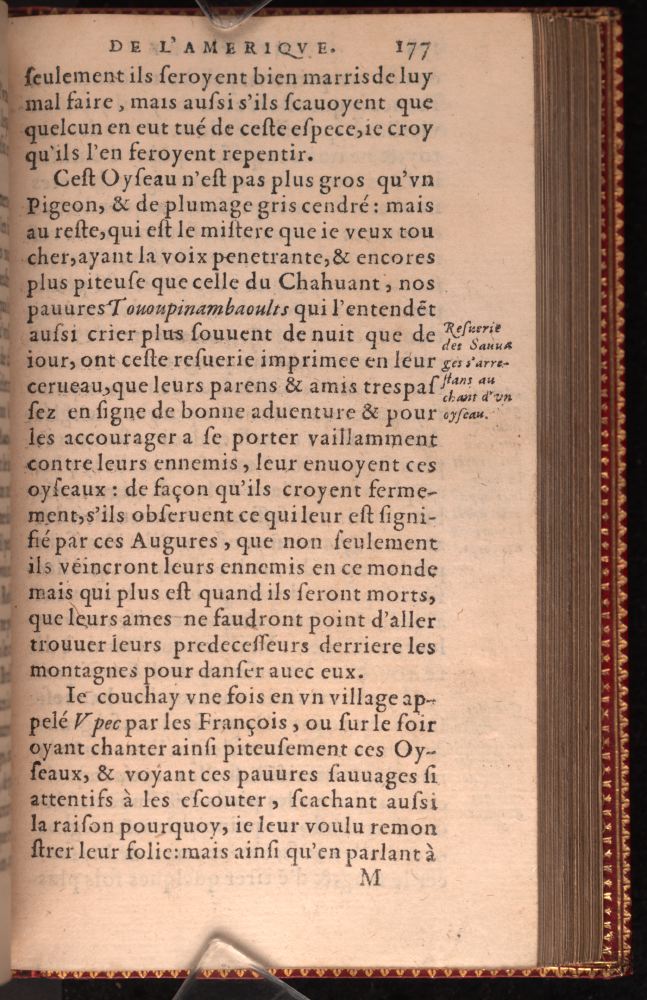 DE L'AMERIQVE. 177
ſeulement ils ſeroyent bien marris de luy
mal faire, mais auſsi s'ils ſcauoyent que
quelcun en eut tué de ceſte eſpece, ie croy
qu'ils l'en feroyent repentir.
Ceſt Oyſeau n'eſt pas plus gros qu'vn
Pigeon, & de plumage gris cendré: mais
au reſte, qui eſt le miſtere que ie veux tou
cher, ayant la voix penetrante, & encores
plus piteuſe que celle du Chahuant, nos
pauures Tououpinambaoults qui l'entendēt
auſsi crier plus ſouuent de nuit que de
iour, ont ceſte reſuerie imprimee en leur
cerueau, que leurs parens & amis treſpaſ
ſez en ſigne de bonne aduenture & pour
les accourager a ſe porter vaillamment
contre leurs ennemis, leur enuoyent ces
oyſeaux: de façon qu'ils croyent ferme-
ment, s'ils obſeruent ce qui leur eſt ſigni-
fié par ces Augures, que non ſeulement
ils vēincront leurs ennemis en ce monde
mais qui plus eſt quand ils ſeront morts,
que leurs ames ne faudront point d'aller
trouuer leurs predeceſſeurs derriere les
montagnes pour danſer auec eux.
Ie couchay vne fois en vn village ap-
pelé Vpec par les François, ou ſur le ſoir
oyant chanter ainſi piteuſement ces Oy-
ſeaux, & voyant ces pauures ſauuages ſi
attentifs à les eſcouter, ſcachant auſsi
la raiſon pourquoy, ie leur voulu remon
ſtrer leur folie: mais ainſi qu'en parlant à
M
Reſuerie
des Sauua
ges s'arre-
ſtans au
chant d'vn
oyſeau.